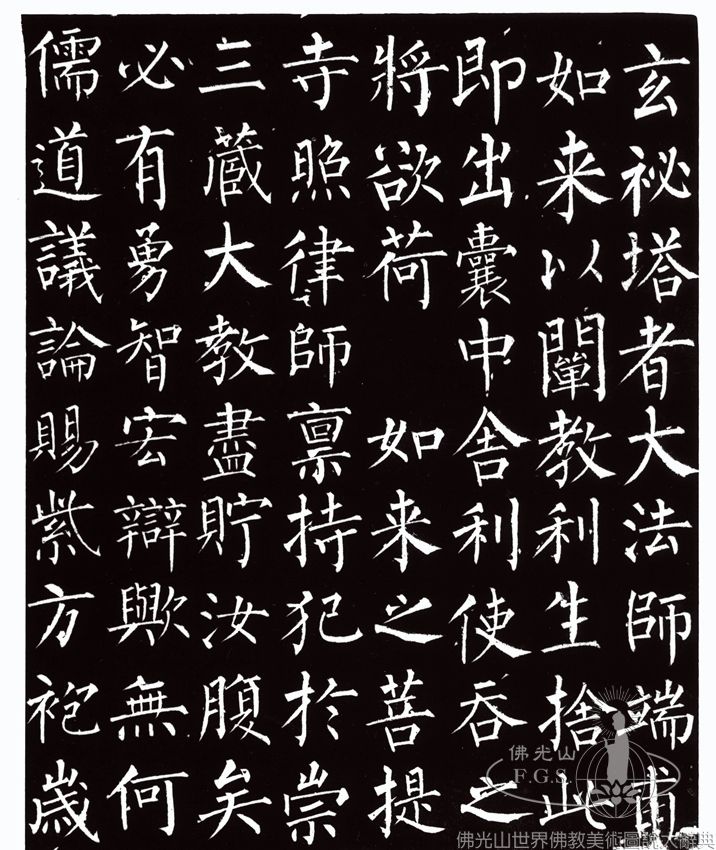 玄祕塔者大法師端甫
如来以闡教利生捨此
即出囊中舍利使吞之
將欲荷 如来之菩提
寺照律師禀持犯於崇
三蔵大教盡貯汝腹矣
必有勇智宏辯歟無何
儒道議論賜紫方袍歲
佛光山
F.G.S.
佛光山世界佛教美術圖說大辭典